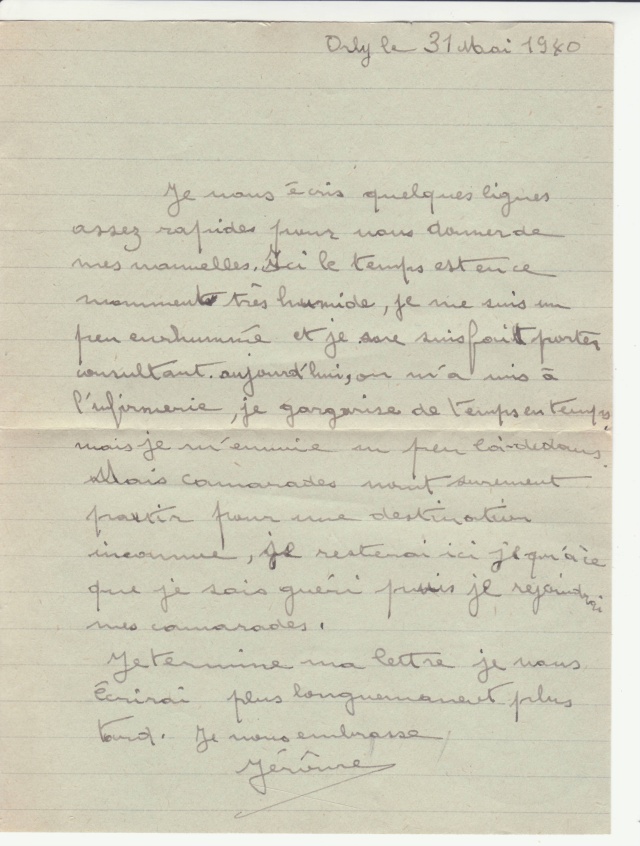 Orly le 31 Mai 1940
Je vous écris quelques lignes
assez rapides pour vous donner de
mes nouvelles. Ici le temps est en ce
momment très humide, je me suis un
peu enrhummé et je me suis fait porter
consultant. aujourd'hui, on m'a mis à
l'infirmerie, je gargarise de temps en temps,
mais je m'ennuie un peu là-dedans.
Mais camarades vont surement
partir pour une destination
inconnue, je resterai ici j'qu'à ce
que je sois guéri puis je rejoindrai
mes camarades.
Je termine ma lettre je vous
Écrirai plus longuemament plus
tard. Je vous embrasse
Jérôme